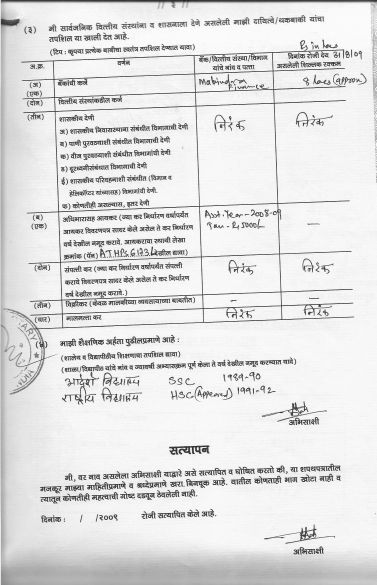 (३) मी सार्वजनिक वित्तीय संस्थांना व शासनाला देणे असलेली माझी दायित्वे/थकबाकी यांचा
तपशिल या खाली देत आहे.
(टिप : कृपया प्रत्येक बाबीचा स्वतंत्र तपशिल देण्यात यावा)
Rs in lacs
अ.क्र. वर्णन बँक/वित्तीय संस्था/विभाग यांचे नांव व पत्ता दिनांक रोजी देय 31/8/09 असलेली शिल्लक रक्कम
(अ) बँकांची कर्जे Mahindra Finance 8 lacs (approx)
(एक)
(दोन) वित्तीय संस्थांकडील कर्ज
(तीन) शासकीय देणी निरंक निरंक
अ) शासकीय निवासस्थाना संबंधीत विभागाची देणी
ब) पाणी पुरवठ्याशी संबंधीत विभागाची देणी
क) वीज पुरवठ्याशी संबंधीत विभागांची देणी
ड) दूरध्वनीसंबंधीत विभागाची देणी
ई) शासकीय परिवहनाशी संबंधीत (विमान व
हेलिकॉप्टर यांच्यासह) विभागांची देणी.
फ) कोणतीही असल्यास, इतर देणी
(ब) अधिभारासह आयकर (ज्या कर निर्धारण वर्षापर्यंत Asst. Year - 2008-09 —
(एक) आयकर विवरणपत्र सादर केले असेल ते कर निर्धारण
वर्ष देखील नमूद करावे. आयकराचा स्थायी लेखा
क्रमांक (पॅन) देखील द्यावा)
(दोन) संपत्ती कर (ज्या कर निर्धारण वर्षापर्यंत संपत्ती निरंक निरंक
करावे विवरणपत्र सादर केले असेल ते कर निर्धारण
वर्ष देखील नमूद करावे.)
(तीन) विक्रीकर (केवळ मालकीच्या व्यवसायाच्या बाबतीत) — —
(चार) मालमत्ता कर निरंक निरंक
माझी शैक्षणिक अर्हता पुढीलप्रमाणे आहे :
(शालेय व विद्यापीठीय शिक्षणाचा तपशिल द्यावा)
(शाळा/विद्यापीठ यांचे नांव व ज्यावर्षी अभ्यासक्रम पूर्ण केला ते वर्ष देखील नमूद करण्यात यावे)
आदर्श विद्यालय SSC 1989-90
राष्ट्रीय विद्यालय HSC (Appeared) 1991-92
अभिसाक्षी
सत्यापन
मी, वर नाव असलेला अभिसाक्षी याद्वारे असे सत्यापित व घोषित करतो की, या शपथपत्रातील
मजकूर माझ्या माहितीप्रमाणे व श्रध्देप्रमाणे खरा बिनचूक आहे. यातील कोणताही भाग खोटा नाही व
त्यातून कोणतीही महत्वाची गोष्ट दडवून ठेवलेली नाही.
दिनांक : / /२००९ रोजी सत्यापित केले आहे.
अभिसाक्षी